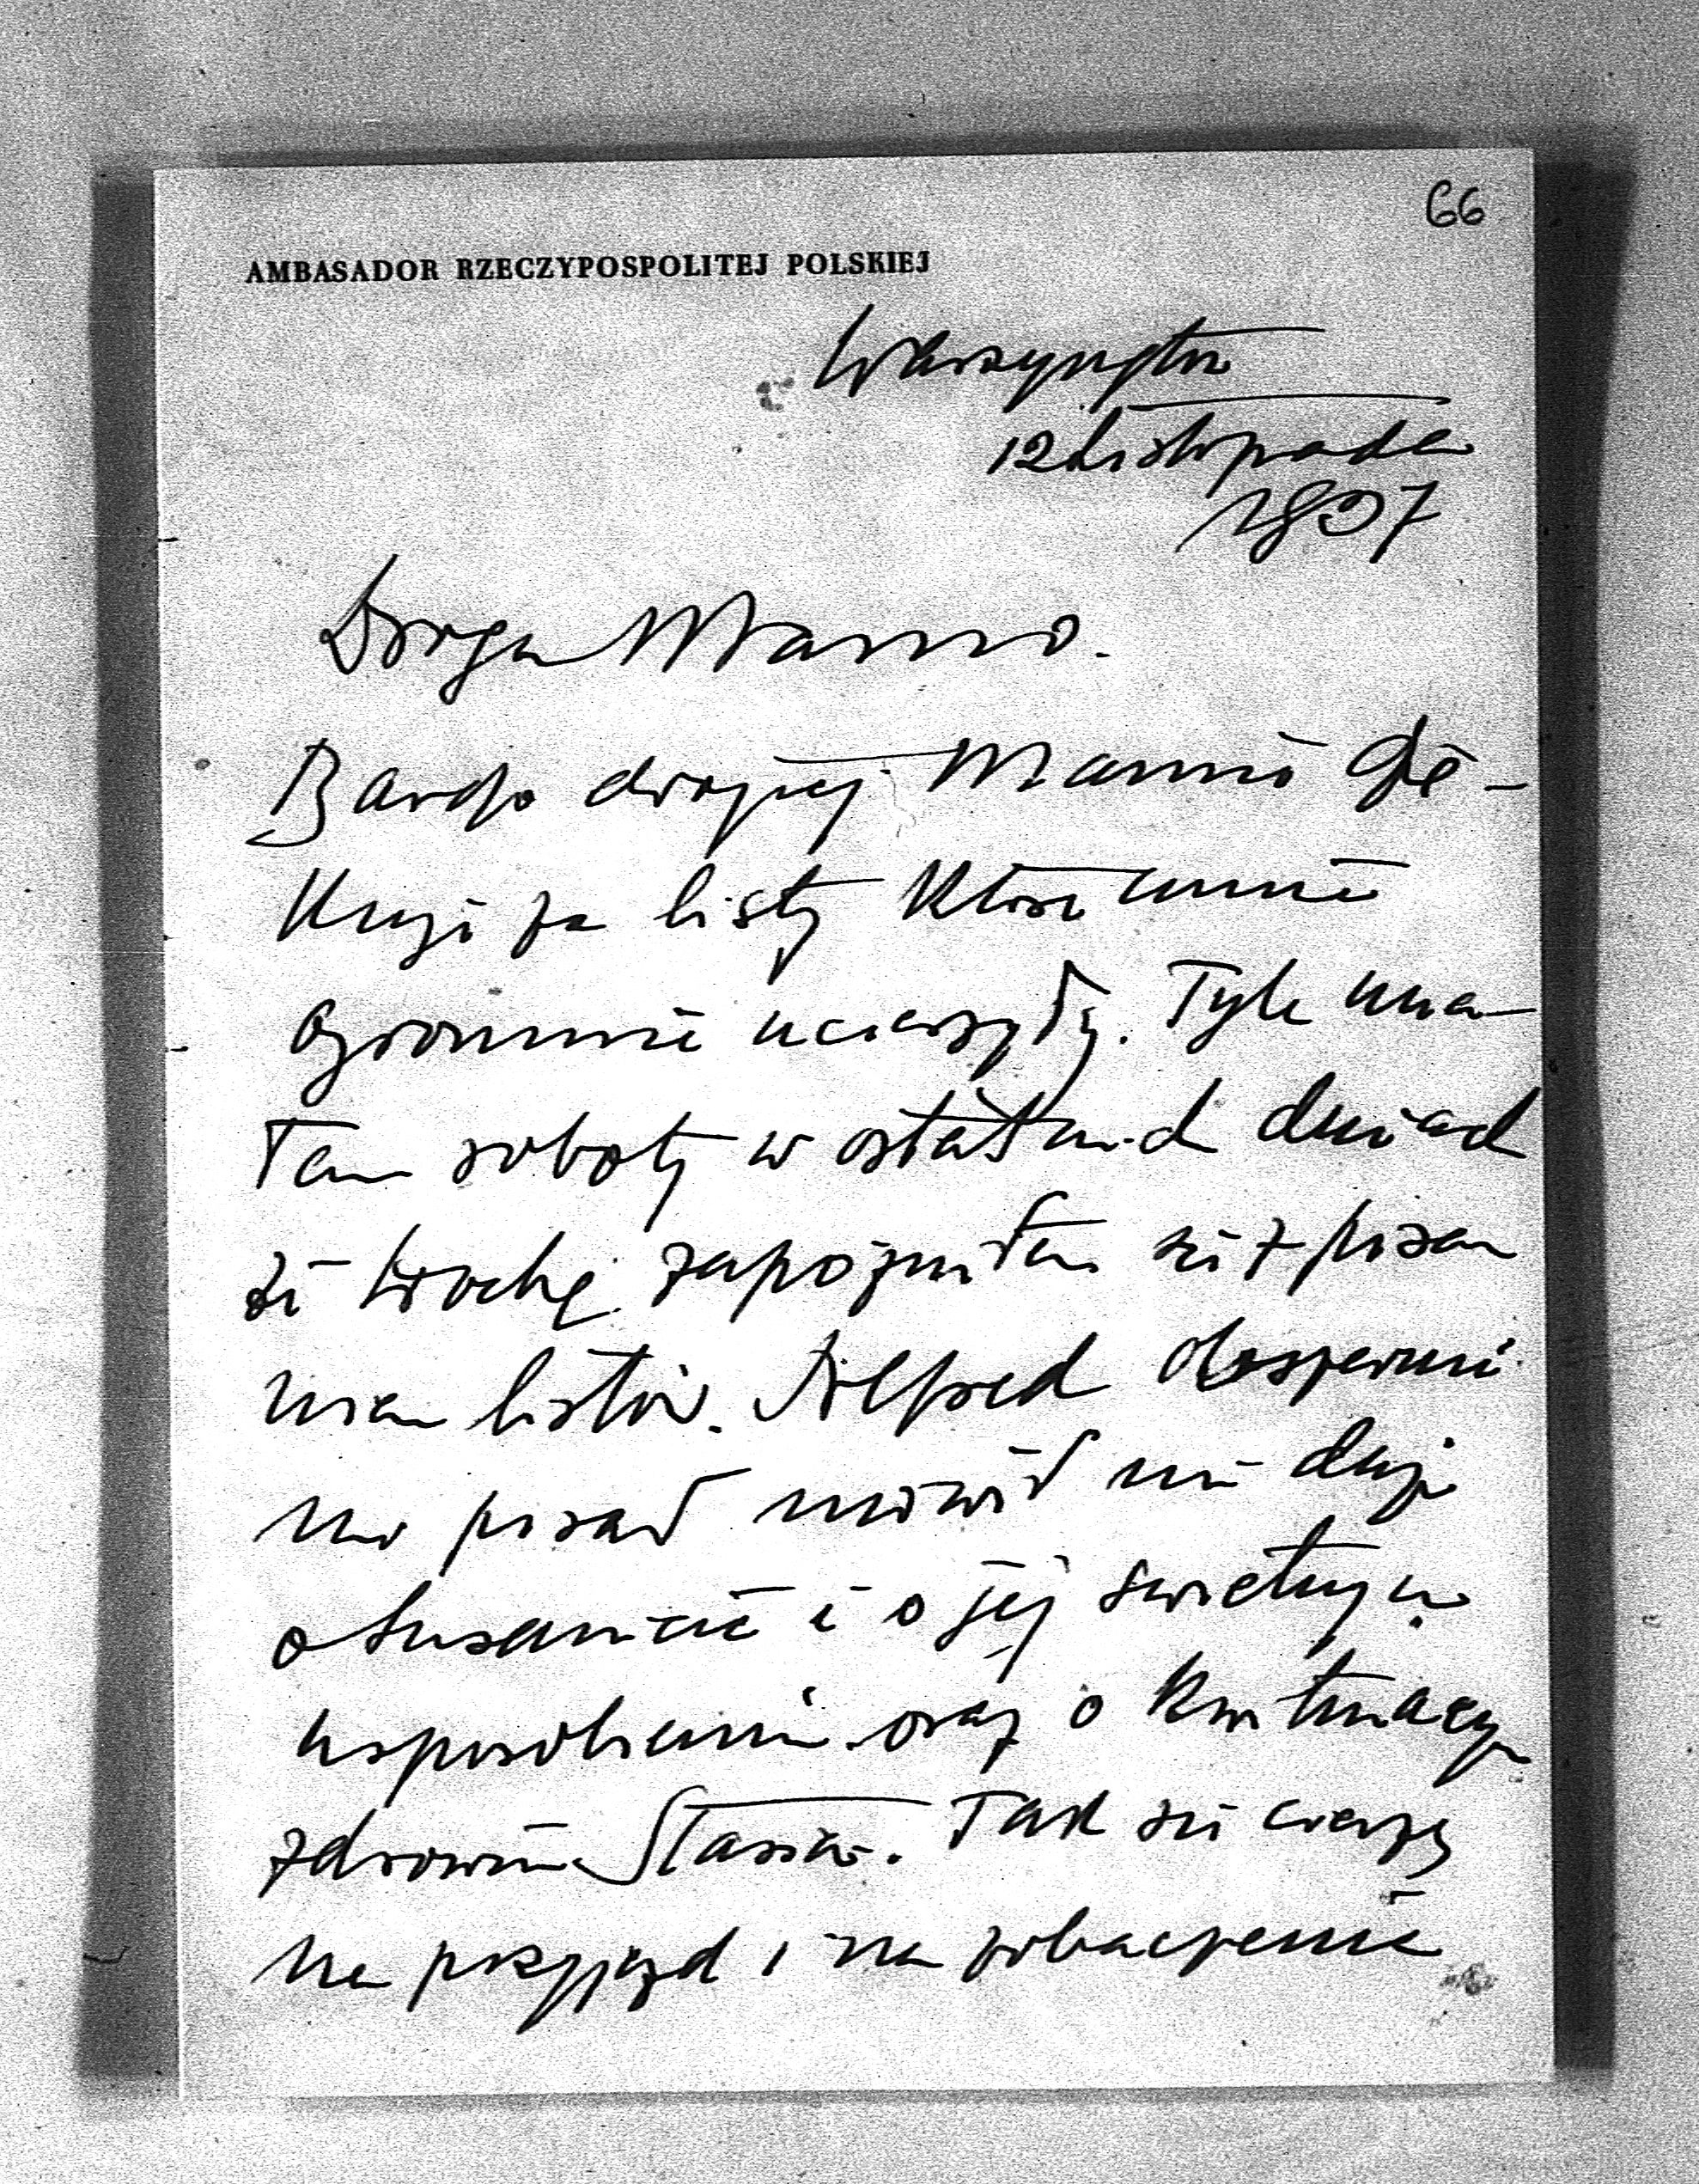 66
AMBASADOR RZECZYPOSPOLITEJ POLSKIEJ
Waszyngton
12 Listopada
1937
Droga Mamo.
Bardzo drogiej Mamie dzię-
kuję za listy które mnie
ogromnie ucieszyły. Tyle mia-
łam roboty w ostatnich dniach
że trochę zapóźniłam się z pisa
niem listów. Alfred
mi pisał mówił mi dużo
o Zuzannie i o jej świetnym
usposobieniu oraz o kwitnącym
zdrowiu Stasia. Tak się cieszę
na przyjazd i na zobaczenie